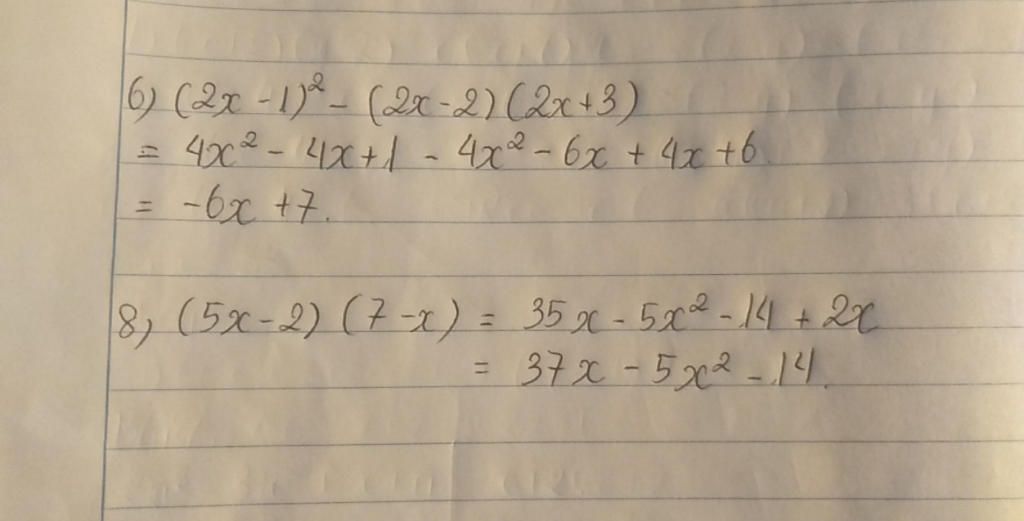 6) (2x - 1)² - (2x - 2)(2x + 3)
= 4x² - 4x + 1 - 4x² - 6x + 4x + 6.
= -6x + 7.
8) (5x - 2) (7 - x) = 35x - 5x² - 14 + 2x
= 37x - 5x² - 14.